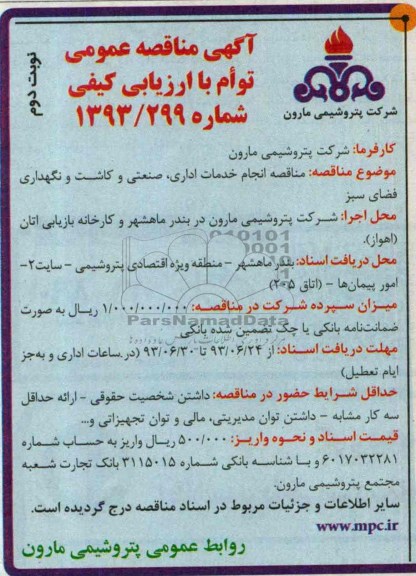 آگهی مناقصه عمومی
توأم با ارزیابی کیفی
شماره ۱۳۹۳/۲۹۹
نوبت دوم
شرکت پتروشیمی مارون
کارفرما: شرکت پتروشیمی مارون
موضوع مناقصه: مناقصه انجام خدمات اداری، صنعتی و کاشت و نگهداری
فضای سبز
محل اجرا: شرکت پتروشیمی مارون در بندر ماهشهر و کارخانه بازیابی اتان
(اهواز).
محل دریافت اسناد: بندر ماهشهر - منطقه ویژه اقتصادی پتروشیمی - سایت۲-
امور پیمان‌ها - (اتاق ۲۰۵)
میزان سپرده شرکت در مناقصه: ۱/۰۰۰/۰۰۰/۰۰۰ ریال به صورت
ضمانت‌نامه بانکی یا چک تضمین شده بانکی
ParsNamadData
مهلت دریافت اسناد: از ۹۳/۰۶/۲۴ تا ۹۳/۰۶/۳۰ (در ساعات اداری و به‌جز
ایام تعطیل)
حداقل شرایط حضور در مناقصه: داشتن شخصیت حقوقی - ارائه حداقل
سه کار مشابه - داشتن توان مدیریتی، مالی و توان تجهیزاتی و...
قیمت اسناد و نحوه واریز: ۵۰۰/۰۰۰ ریال واریز به حساب شماره
۶۰۱۷۰۳۲۲۸۱ و با شناسه بانکی شماره ۳۱۱۵۰۱۵ بانک تجارت شعبه
مجتمع پتروشیمی مارون.
سایر اطلاعات و جزئیات مربوط در اسناد مناقصه درج گردیده است.
www.mpc.ir
روابط عمومی پتروشیمی مارون